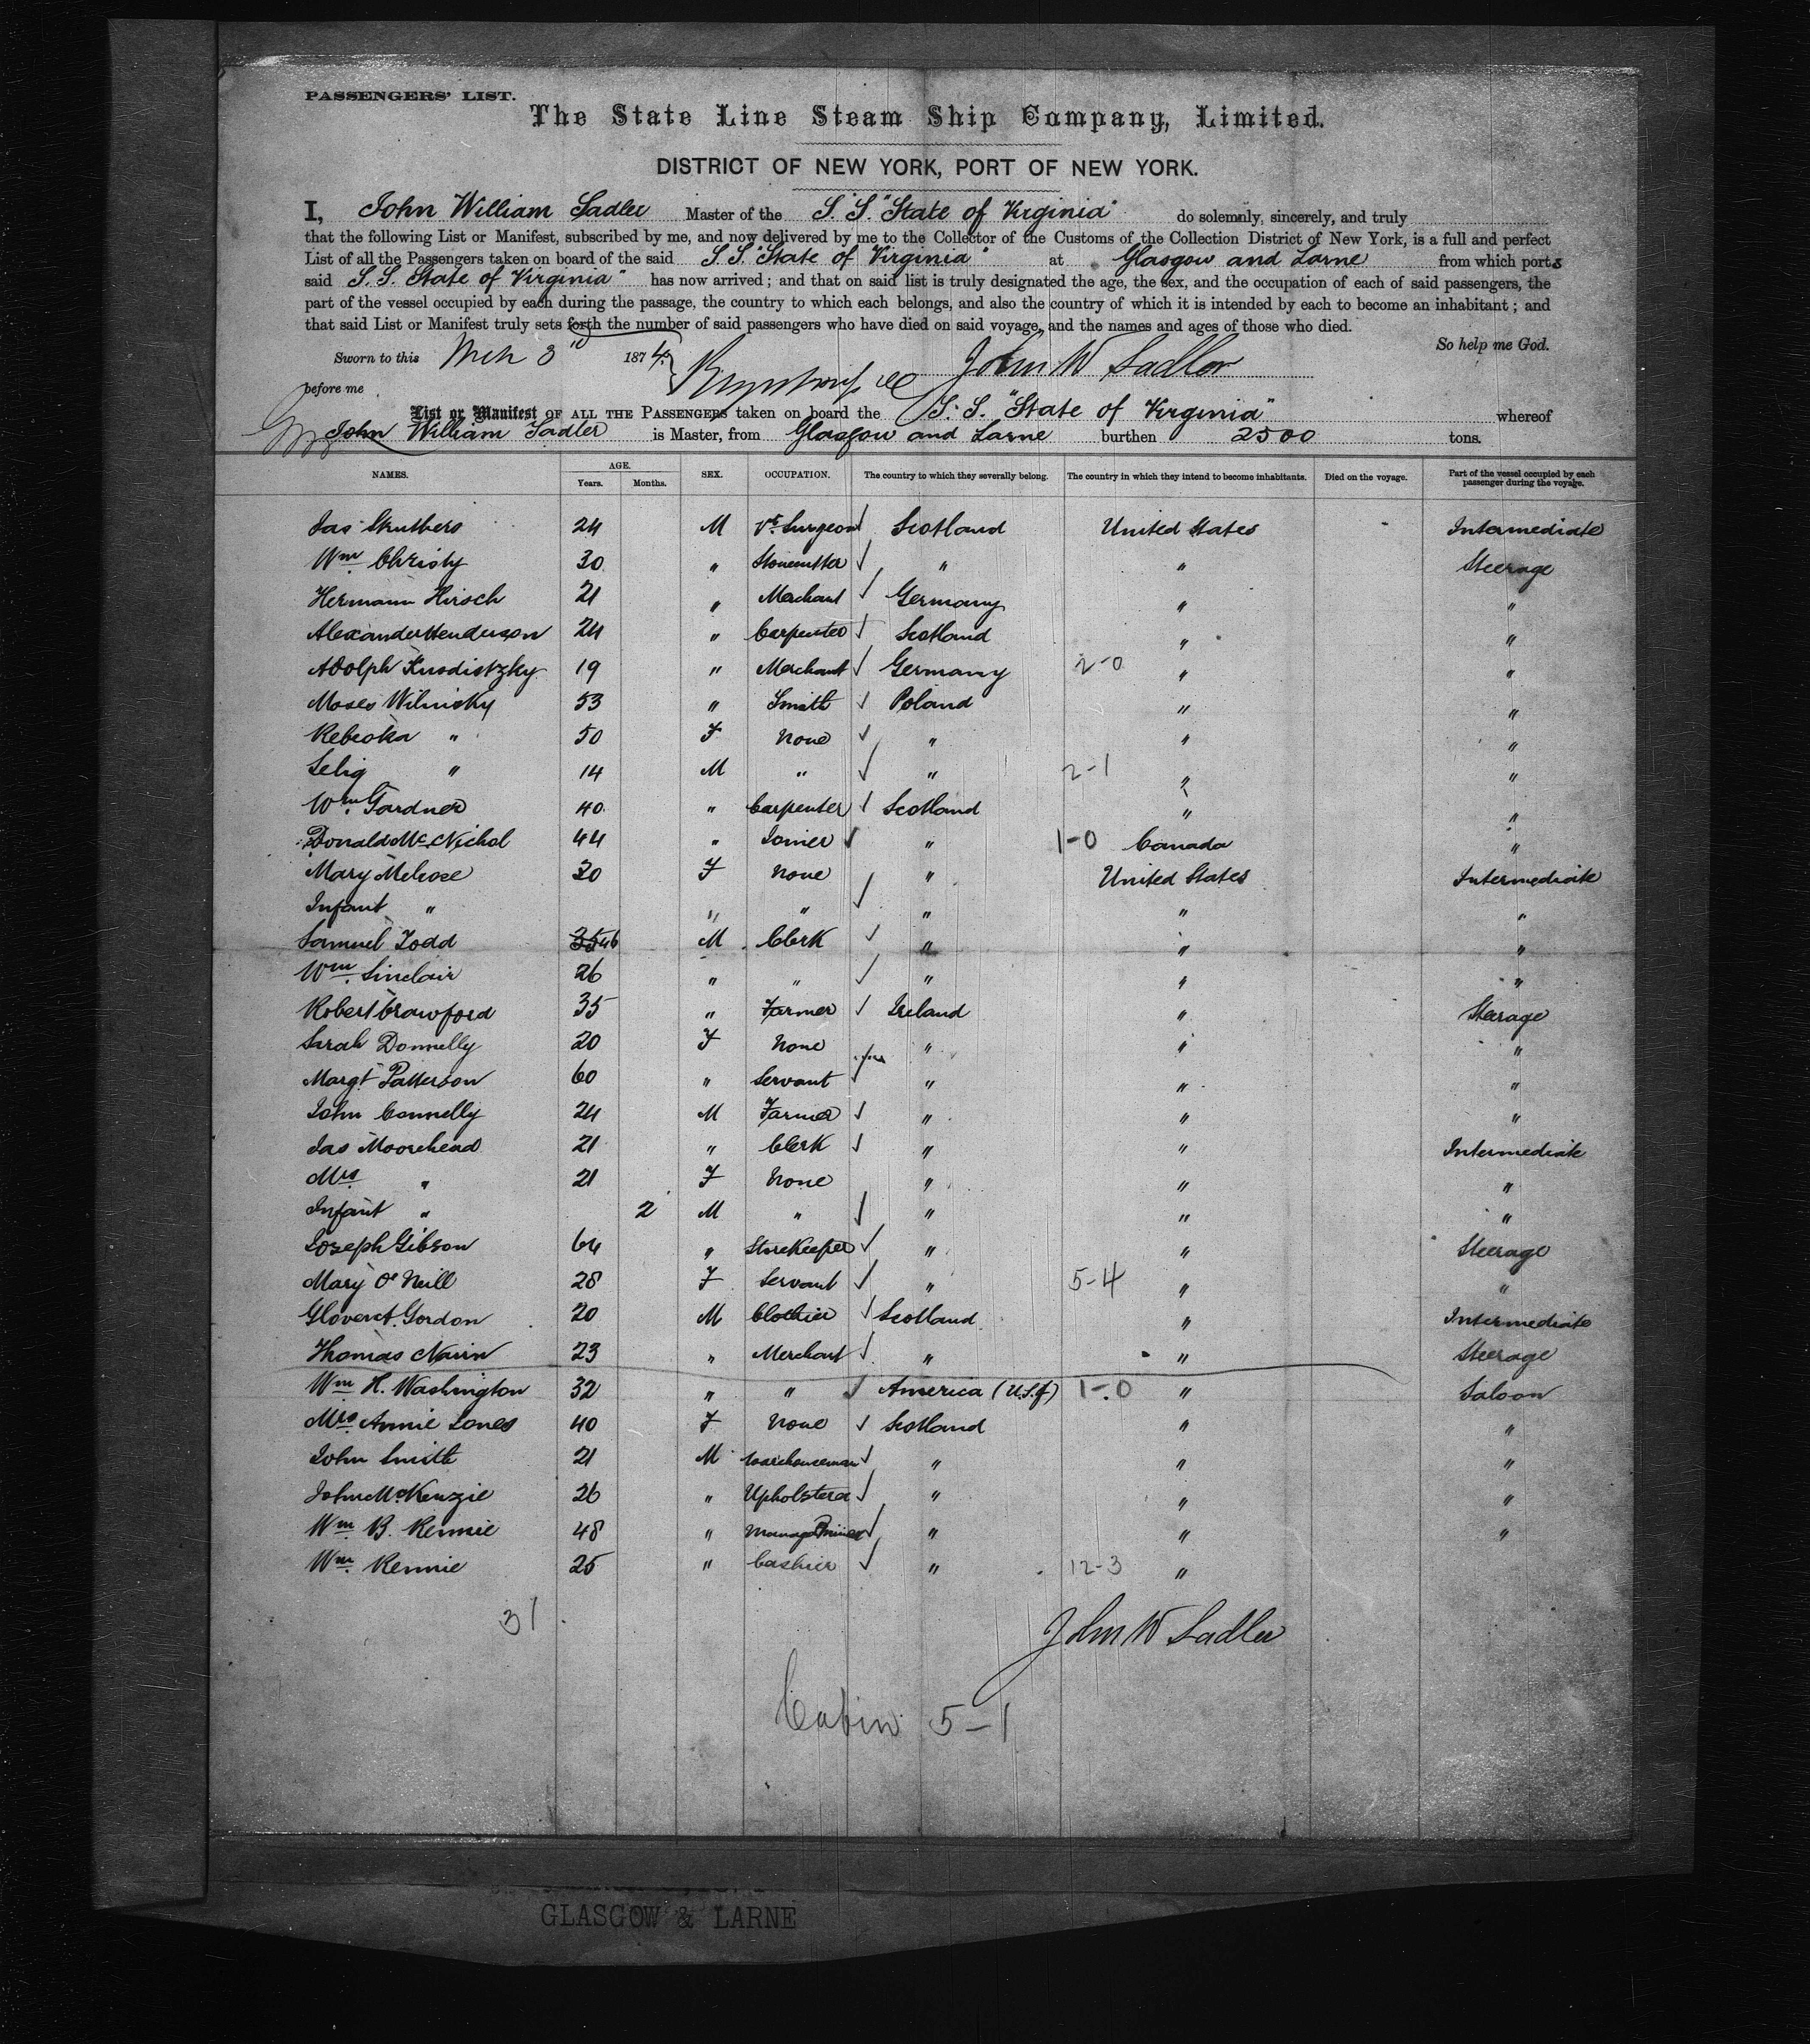 PASSENGERS' LIST.
The State Line Steam Ship Company, Limited.
DISTRICT OF NEW YORK, PORT OF NEW YORK.
I, John William Sadler Master of the S.S. "State of Virginia" do solemnly, sincerely, and truly
that the following List or Manifest, subscribed by me, and now delivered by me to the Collector of the Customs of the Collection District of New York, is a full and perfect
List of all the Passengers taken on board of the said S.S. "State of Virginia" at Glasgow and Larne from which ports
said S.S. "State of Virginia" has now arrived; and that on said list is truly designated the age, the sex, and the occupation of each of said passengers, the
part of the vessel occupied by each during the passage, the country to which each belongs, and also the country of which it is intended by each to become an inhabitant; and
that said List or Manifest truly sets forth the number of said passengers who have died on said voyage, and the names and ages of those who died.
So help me God.
Sworn to this Mch 3d 1874 John W Sadler
before me
List or Manifest OF ALL THE PASSENGERS taken on board the S.S. "State of Virginia" whereof
John William Sadler is Master, from Glasgow and Larne burthen 2500 tons.
NAMES. AGE. Years. Months. SEX. OCCUPATION. The country to which they severally belong. The country in which they intend to become inhabitants. Died on the voyage. Part of the vessel occupied by each passenger during the voyage.
Jas Struthers 24 M Vt. Surgeon Scotland United States Intermediate
Wm Christy 30 " Stonecutter " " Steerage
Hermann Hirsch 21 " Merchant Germany " "
Alexander Henderson 24 " Carpenter Scotland " "
Adolph 19 " Merchant Germany 2-0 " "
Moses Wilinsky 53 " Smith Poland " "
Rebecka " 50 F None " " "
Selig " 14 M " " 2-1 " "
Wm Gardner 40 " Carpenter Scotland " "
Donald McNichol 44 " Joiner " 1-0 Canada "
Mary Melrose 30 F None " United States Intermediate
Infant " " " " " "
Samuel Todd 35 46 M Clerk " " "
Wm Sinclair 26 " " " " "
Robert Crawford 35 " Farmer Ireland " Steerage
Sarah Donnelly 20 F None " " "
Margt Patterson 60 " Servant " " "
John Connelly 24 M Farmer " " "
Jas Moorehead 21 " Clerk " " Intermediate
Mrs " 21 F None " " "
Infant " 2 M " " " "
Joseph Gibson 64 " Storekeeper " " Steerage
Mary O'Neill 28 F Servant " 5-4 " "
Glover Gordon 20 M Clothier Scotland " Intermediate
Thomas Nairn 23 " Merchant " " Steerage
Wm H. Washington 32 " " America (U.S.) 1-0 " Saloon
Mrs Annie Jones 40 F None Scotland " "
John Smith 21 M Warehouseman " " "
John McKenzie 26 " Upholsterer " " "
Wm B. Rennie 48 " " " "
Wm Rennie 25 " Cashier " 12-3 "
31
John W Sadler
Cabin 5-1
GLASGOW & LARNE